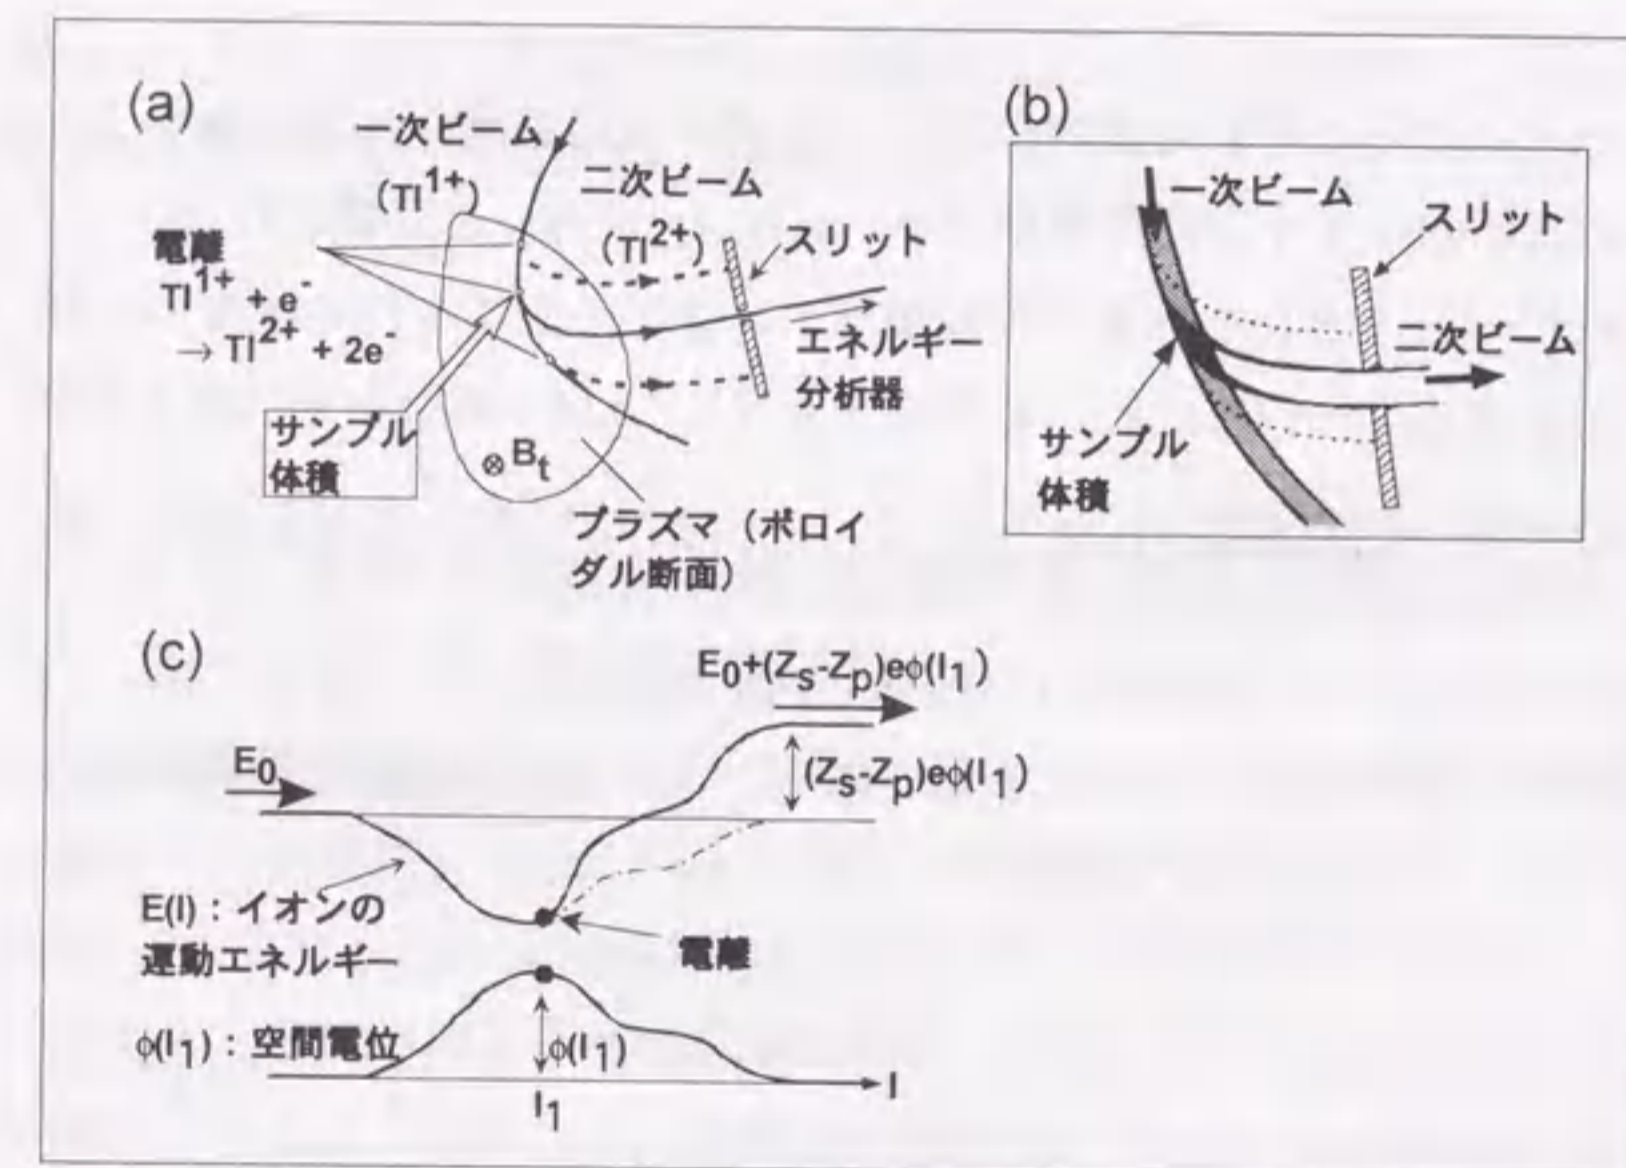 (a)
一次ビーム
(Tl1+)
二次ビーム
(Tl2+)
スリット
電離
Tl1+ + e-
→ Tl2+ + 2e-
エネルギー
分析器
サンプル
体積
⊗ Bt
プラズマ（ポロイ
ダル断面）
(b)
一次ビーム
スリット
二次ビーム
サンプル
体積
(c)
E0+(Zs-Zp)eϕ(l1)
E0
(Zs-Zp)eϕ(l1)
E(l)：イオンの
運動エネルギー
電離
ϕ(l1)：空間電位
ϕ(l1)
l
l1